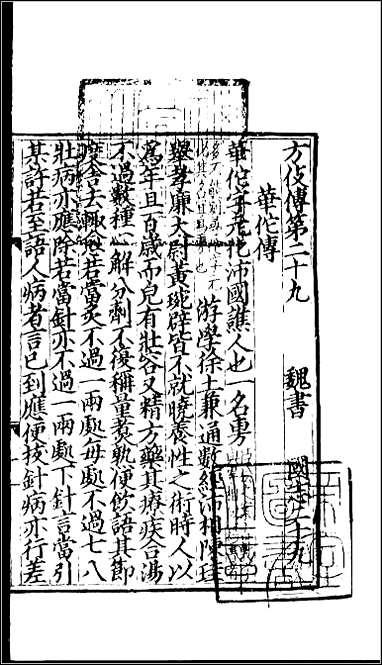 方伎傳第二十九 魏書 國志二十九
華佗傳
華佗字元化沛國譙人也一名旉
游學徐土兼通數經沛相陳珪
舉孝廉大尉黃琬辟皆不就曉養性之術時人以
爲年且百歲而皃有壯容又精方藥其療疾合湯
不過數種心解分劑不復稱量煑熟便飲語其節
度舍去輒愈若當灸不過一兩處每處不過七八
壯病亦應除若當針亦不過一兩處下針言當引
某許若至語人病者言已到應便拔針病亦行差